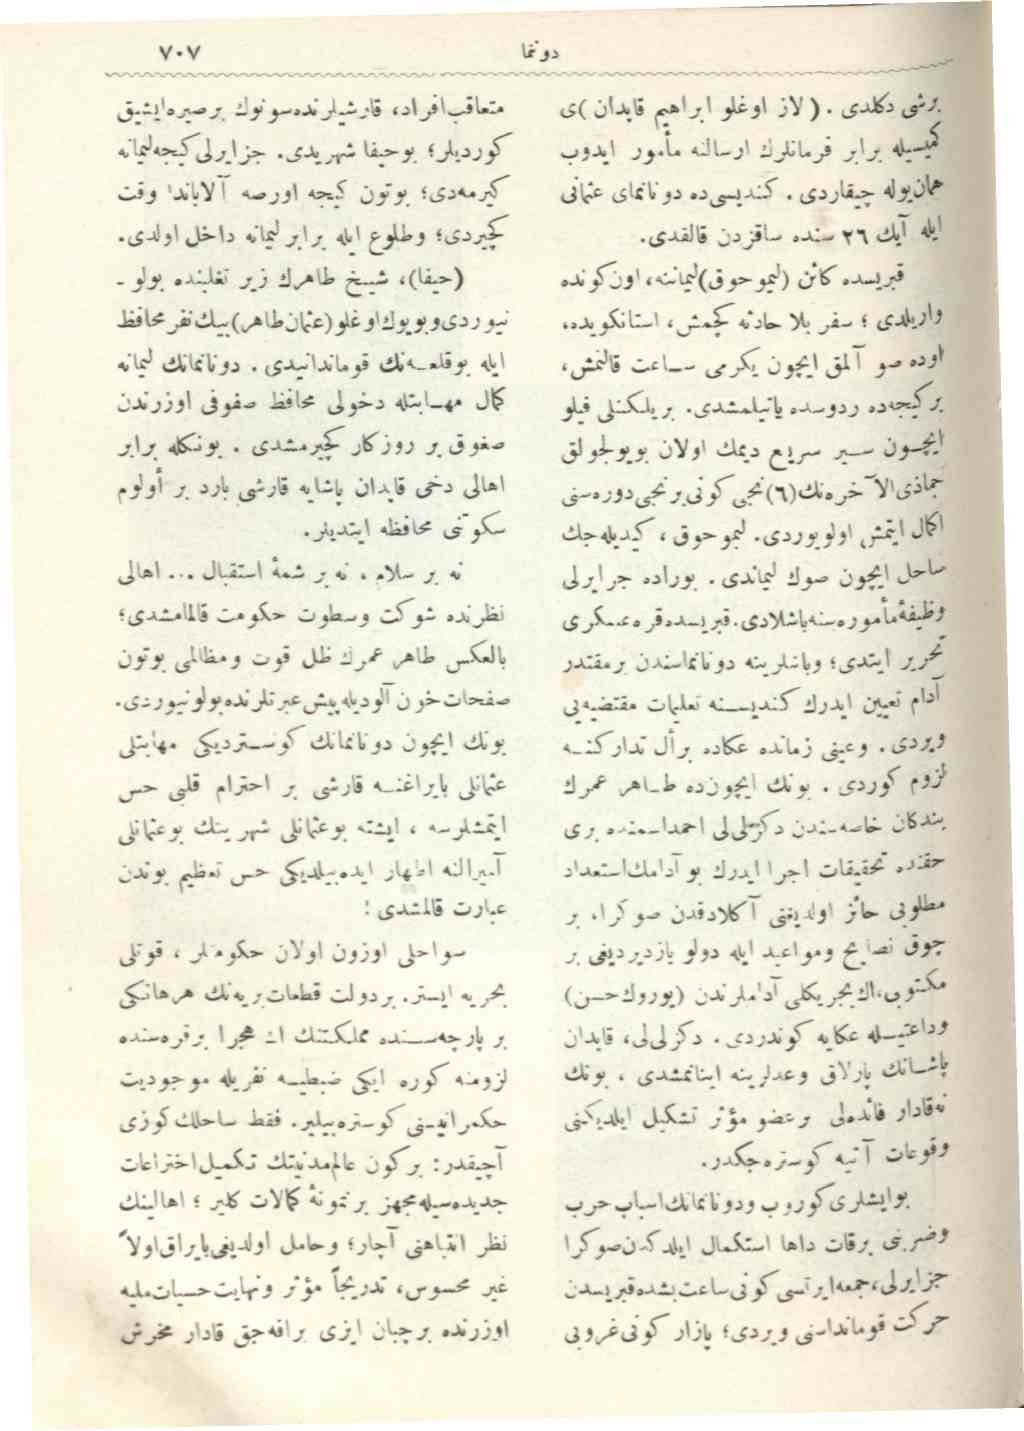 دوننما
٧٠٧
برشی دكلدی . ( لاز اوغلو ابراهیم قاپدان ) ی
كمیسیله برابر فرمانلرك ارسالنه مأمور ایدوب
همان یوله چیقاردی . كندیسی‌ده دونانمای عثمانی
ایله آیك ٢٦ سنده ساقزدن قالقدی.
قبریسده كائن (لیموحوق)لیماننه، اون كونده
واریلدی ؛ سفر بلا حادثه كچمش، استانكویده،
اوده صو آلمق ایچون یكرمی ساعت قالنمش،
بر كیجه‌ده ردوسده یاتیلمشدی. بریلكنلی فیلو
ایچون سیر سریع دیمك اولان بویولجولق
جماذی‌الآخره‌نك(٦)نجی كونی برنجی دوره‌سنی
اكمال ایتمش اولویوردی. لیموحوق ، كیدیله‌جك
ساحل ایچون صوك لیماندی . بوراده جزایرلی
وظیفۀ مأموره‌سنه باشلادی. قبریسده قره عسكری
تحریر ایتدی؛ وباشلرینه دونانماسندن برمقتدر
آدام تعیین ایدرك كندیسنه تعلیمات مقتضیه‌یی
ویردی . وعینی زمانده عكاده برأل تداركنه
لزوم كوردی . بونك ایچون‌ده طاهر عمرك
بندكان خاصه‌سندن دكزلی‌لی احمداسمنده بری
حقنده تحقیقات اجرا ایدرك بو آدامك استعداد
مطلوبی حائز اولدیغنی آكلادقدن صوكرا، بر
چوق نصایح ومواعید ایله دولو یازدیردیغی بر
مكتوبی، اك بجریكلی آداملرندن (یوروك حسن)
وداعتیله عكایه كوندردی . دكزلی‌لی، قاپدان
پاشانك پارلاق وعدلرینه اینانمشدی ، بونك
نه‌قادار فائده‌لی بر عضو مؤثر تشكیل ایلدیكنی
وقوعات آتیه كوستره‌جكدر.
بوایشلری كوروب ودونانمانك اسباب حرب
وضربنی برقات داها استكمال ایلدكدن صوكرا
جزایرلی، جمعه‌ایرتسی كونی ساعت بشده قبریسدن
حركت قوماندانسنی ویردی؛ پازار كونی غروبی
متعاقب افراد، قارشیلرنده سونوك بر صیره ایشیق
كوردیلر؛ بوحیفا شهریدی. جزایرلی كیجه لیمانه
كیرمه‌دی؛ بوتون كیجه اورصه آلاباندا وقت
كچیردی؛ وطلوع ایله برابر لیمانه داخل اولدی.
(حیفا)، شیخ طاهرك زیر تغلبنده بولو ـ
نیوردی وبویوك اوغلو (عثمان طاهر) بیك نفر محافظ
ایله بوقلعه‌نك قوماندانیدی . دونانمانك لیمانه
كمال مهابتله دخولی محافظ صفوفی اوزرندن
صغوق بر روزكار كچیرمشدی . بونكله برابر
اهالی دخی قاپدان پاشایه قارشی بارد بر أولوم
سكوتنی محافظه ایتدیلر.
نه بر سلام ، نه بر شمۀ استقبال ... اهالی
نظرنده شوكت وسطوت حكومت قالمامشدی؛
بالعكس طاهر عمرك ظل قوت ومظالمی بوتون
صفحات خون آلودیله پیش عبرتلرنده بولونیوردی.
بونك ایچون دونانمانك كوستردیكی مهابتلی
عثمانلی بایراغنه قارشی بر احترام قلبی حس
ایتمشلرسه ، ایشته بوعثمانلی شهرینك بوعثمانلی
آمیرالنه اظهار ایده‌بیلدیكی حس تعظیم بوندن
عبارت قالمشدی !
سواحلی اوزون اولان حكومتلر ، قوتلی
بحریه ایستر. بردولت قطعات بریه‌نك هرهانكی
بر پارچه‌سنده مملكتنك اك هجرا برقره‌سنده
لزومنه كوره ایكی ضبطیه نفریله موجودیت
حكمرانیسنی كوستره‌بیلیر. فقط ساحلك كوزی
آچیقدر: بركون عالم مدنیتك تكمیل اختراعات
جدیده‌سیله مجهز برنمونۀ كمالات كلیر ؛ اهالینك
نظر انتباهنی آچار؛ وحامل اولدیغی بایراق اولاً
غیر محسوس، تدریجاً مؤثر ونهایت حسیات ملیه
اوزرنده برچبان ایزی براقه‌جق قادار مخرش